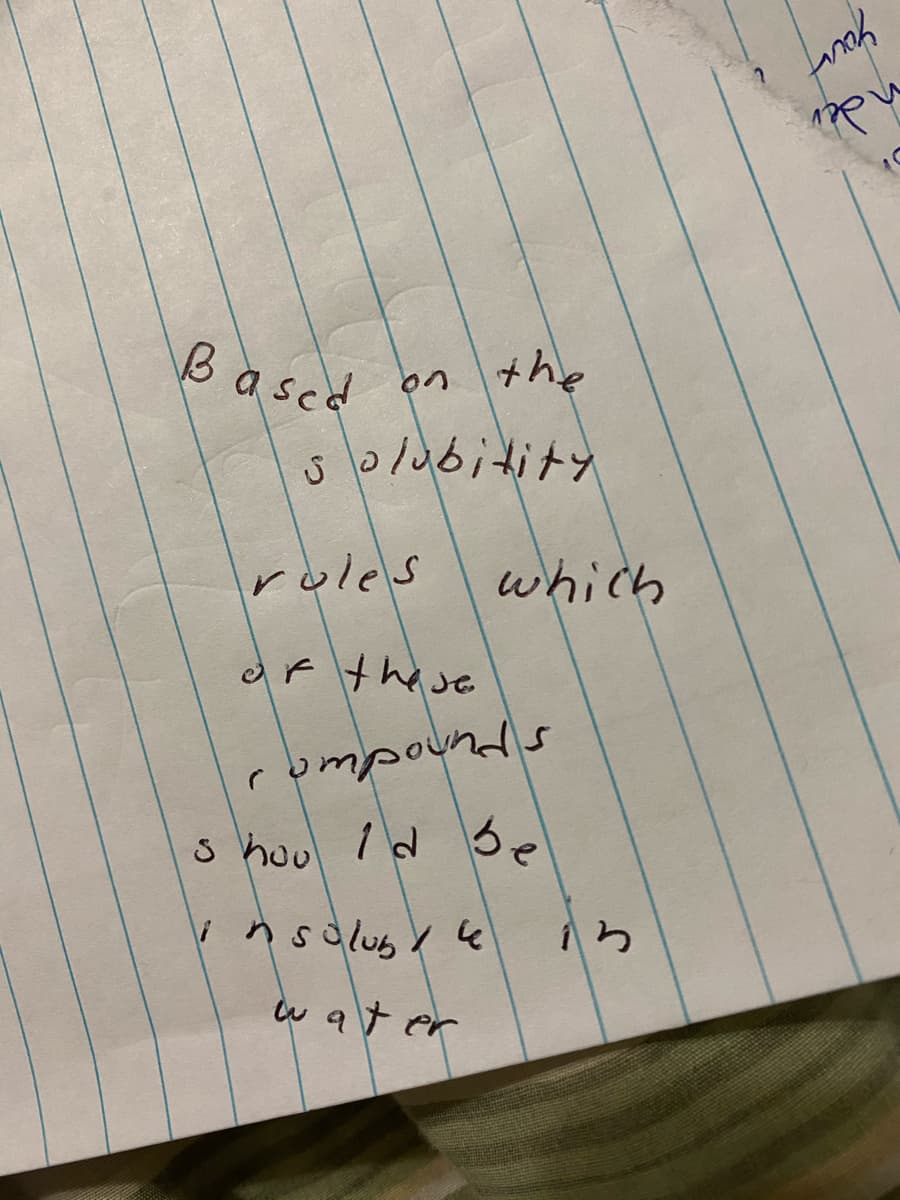 Based on the
solubility
rules which
of these
compounds
should be
insoluble in
water
your